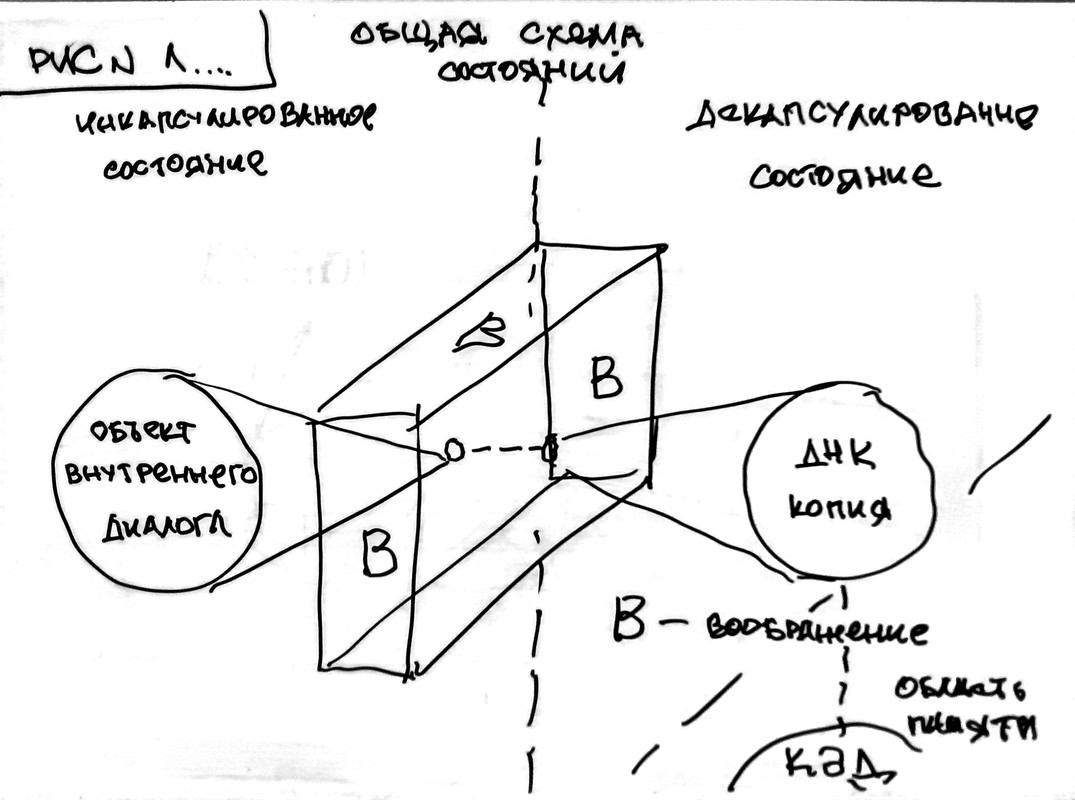 РИС N 1....
ОБЩАЯ СХЕМА
СОСТОЯНИЙ
ИНКАПСУЛИРОВАННОЕ
СОСТОЯНИЕ
ДЕКАПСУЛИРОВАННОЕ
СОСТОЯНИЕ
В
В
ОБЪЕКТ
ВНУТРЕННЕГО
ДИАЛОГА
ДНК
КОПИЯ
В
В — ВООБРАЖЕНИЕ
ОБЛАСТЬ
ПАМЯТИ
КЭД